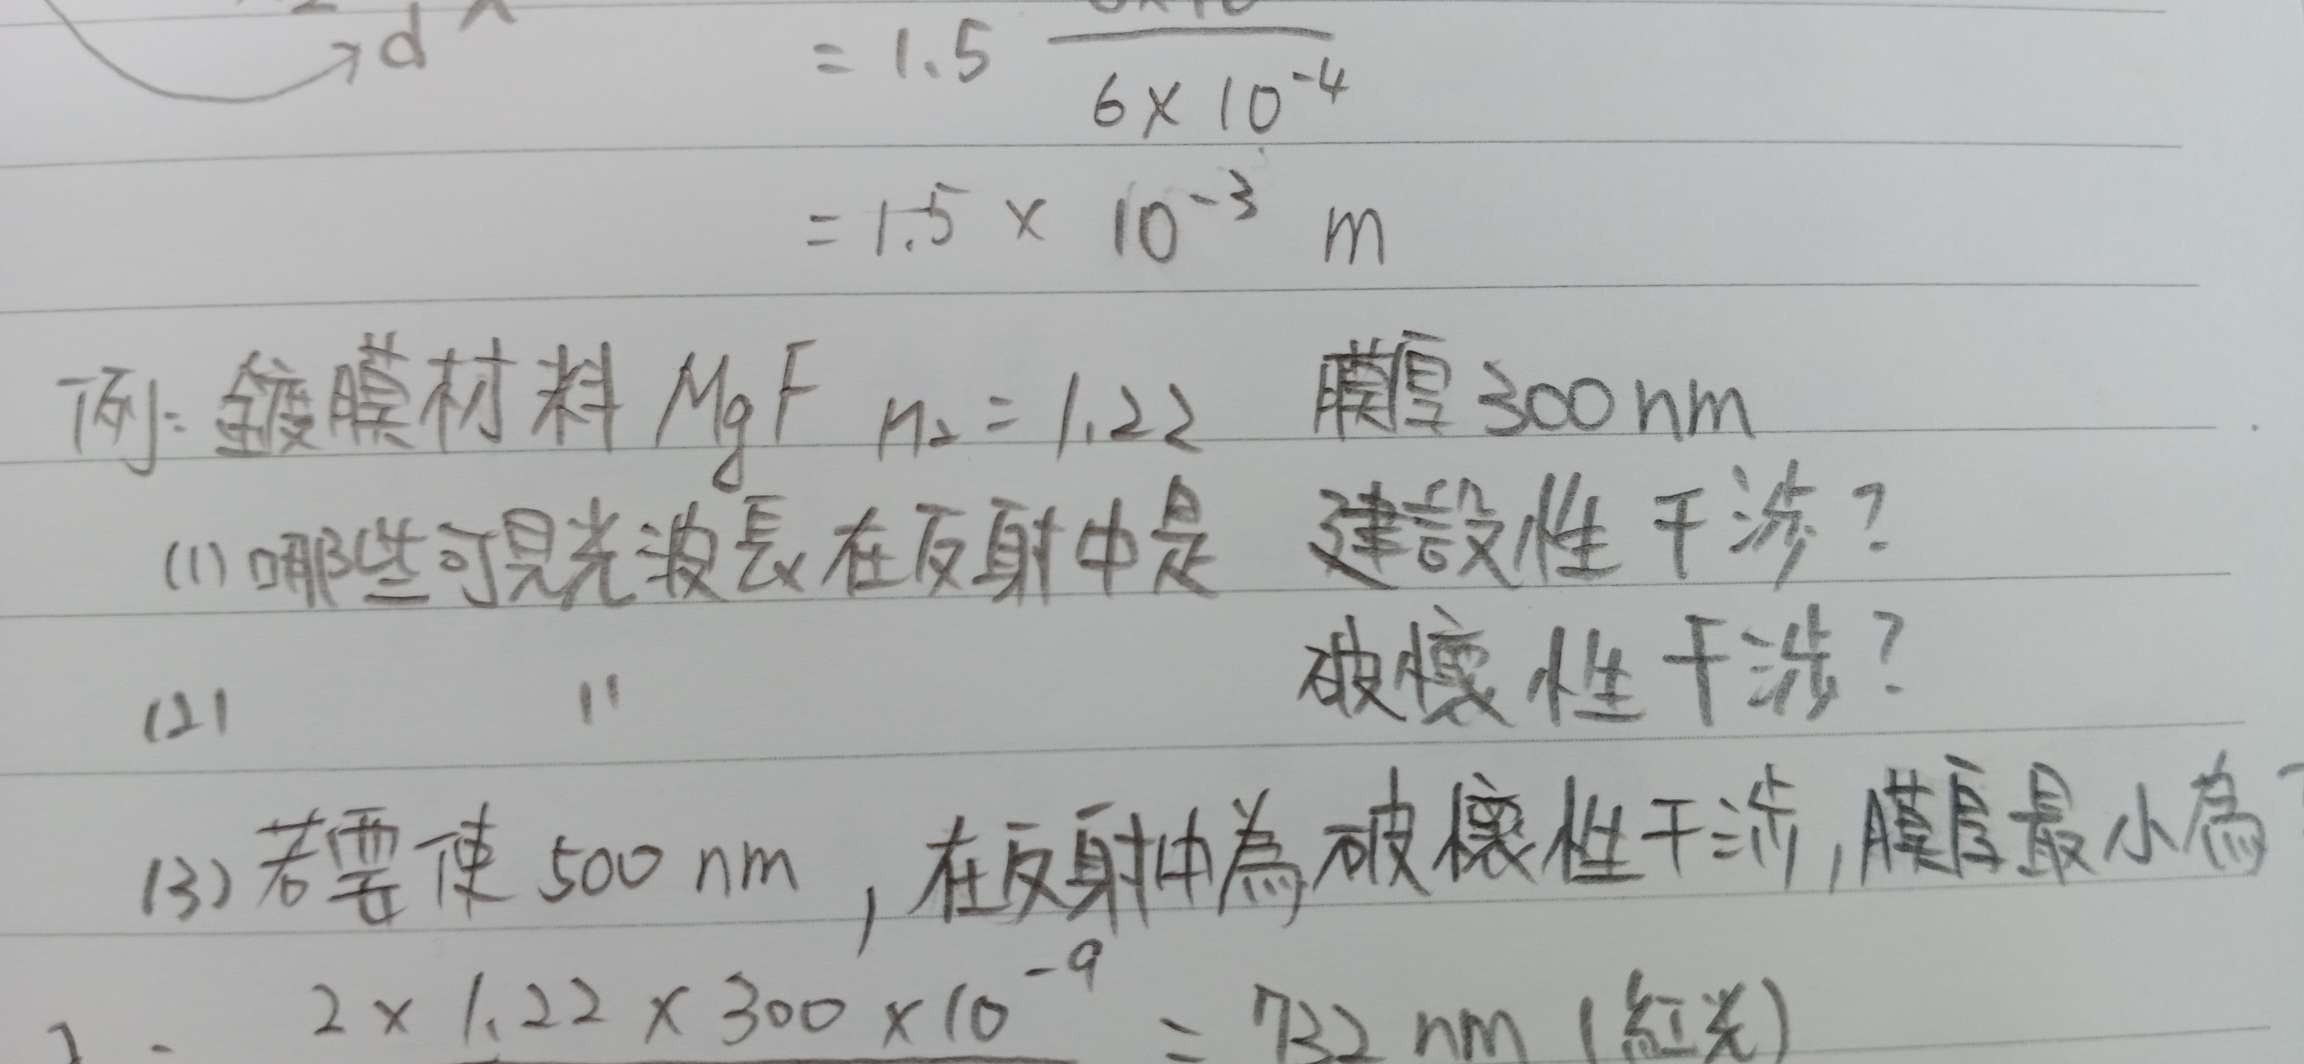 d
= 1.5
6 × 10⁻⁴
= 1.5 × 10⁻³ m
例: 鍍膜材料 MgF n₂ = 1.22 膜厚 300 nm
(1) 哪些可見光波長在反射中是 建設性干涉?
(2) 〃 破壞性干涉?
(3) 若要使 500 nm , 在反射中為破壞性干涉, 膜厚最小為?
2 × 1.22 × 300 × 10⁻⁹ = 732 nm (紅光)